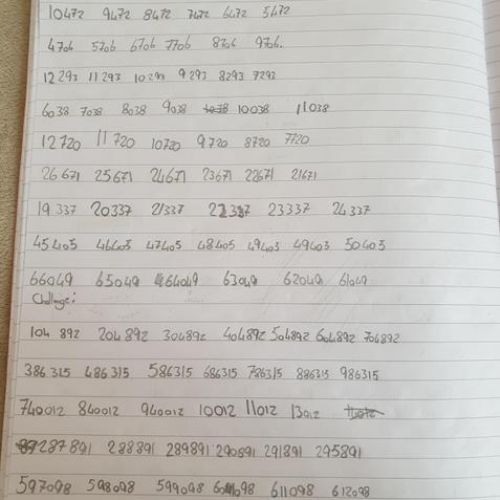 10472 9472 8472 7472 6472 5472
4706 5706 6706 7706 8706 9706.
12293 11293 10293 9293 8293 7293
6038 7038 8038 9038 10038 11038
12720 11720 10720 9720 8720 7720
26671 25671 24671 23671 22671 21671
19337 20337 21337 22337 23337 24337
45405 46405 47405 48405 49405 49405 50405
66049 65049 64049 63049 62049 61049
Challenge:
104 892 204 892 304892 404892 504892 604892 704892
386315 486315 586315 686315 786315 886315 986315
740012 840012 940012 10012 11012 13012
287891 288891 289891 290891 291891 295891
597098 598098 599098 611098 612098